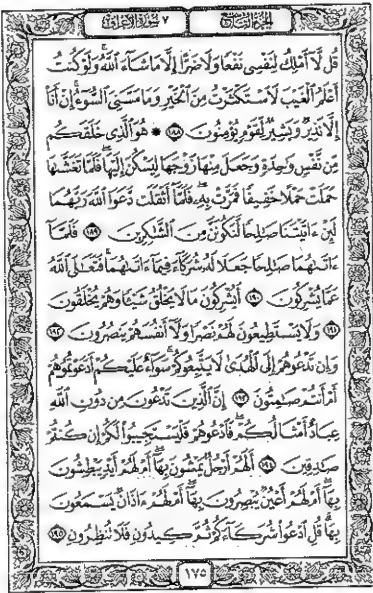 الجزء التاسع ٧ سورة الأعراف
قُل لَّآ أَمْلِكُ لِنَفْسِى نَفْعًا وَلَا ضَرًّا إِلَّا مَا شَآءَ ٱللَّهُ وَلَوْ كُنتُ
أَعْلَمُ ٱلْغَيْبَ لَٱسْتَكْثَرْتُ مِنَ ٱلْخَيْرِ وَمَا مَسَّنِىَ ٱلسُّوٓءُ إِنْ أَنَا۠
إِلَّا نَذِيرٌ وَبَشِيرٌ لِّقَوْمٍ يُؤْمِنُونَ ١٨٨ * هُوَ ٱلَّذِى خَلَقَكُم
مِّن نَّفْسٍ وَٰحِدَةٍ وَجَعَلَ مِنْهَا زَوْجَهَا لِيَسْكُنَ إِلَيْهَا فَلَمَّا تَغَشَّىٰهَا
حَمَلَتْ حَمْلًا خَفِيفًا فَمَرَّتْ بِهِۦ فَلَمَّآ أَثْقَلَت دَّعَوَا ٱللَّهَ رَبَّهُمَا
لَئِنْ ءَاتَيْتَنَا صَٰلِحًا لَّنَكُونَنَّ مِنَ ٱلشَّٰكِرِينَ ١٨٩ فَلَمَّآ
ءَاتَىٰهُمَا صَٰلِحًا جَعَلَا لَهُۥ شُرَكَآءَ فِيمَآ ءَاتَىٰهُمَا فَتَعَٰلَى ٱللَّهُ
عَمَّا يُشْرِكُونَ ١٩٠ أَيُشْرِكُونَ مَا لَا يَخْلُقُ شَيْـًٔا وَهُمْ يُخْلَقُونَ
١٩١ وَلَا يَسْتَطِيعُونَ لَهُمْ نَصْرًا وَلَآ أَنفُسَهُمْ يَنصُرُونَ ١٩٢
وَإِن تَدْعُوهُمْ إِلَى ٱلْهُدَىٰ لَا يَتَّبِعُوكُمْ سَوَآءٌ عَلَيْكُمْ أَدَعَوْتُمُوهُمْ
أَمْ أَنتُمْ صَٰمِتُونَ ١٩٣ إِنَّ ٱلَّذِينَ تَدْعُونَ مِن دُونِ ٱللَّهِ
عِبَادٌ أَمْثَالُكُمْ فَٱدْعُوهُمْ فَلْيَسْتَجِيبُوا۟ لَكُمْ إِن كُنتُمْ
صَٰدِقِينَ ١٩٤ أَلَهُمْ أَرْجُلٌ يَمْشُونَ بِهَآ أَمْ لَهُمْ أَيْدٍ يَبْطِشُونَ
بِهَآ أَمْ لَهُمْ أَعْيُنٌ يُبْصِرُونَ بِهَآ أَمْ لَهُمْ ءَاذَانٌ يَسْمَعُونَ
بِهَا قُلِ ٱدْعُوا۟ شُرَكَآءَكُمْ ثُمَّ كِيدُونِ فَلَا تُنظِرُونِ ١٩٥
١٧٥